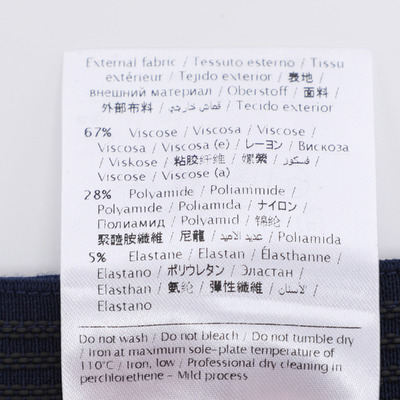 External fabric / Tessuto esterno / Tissu
extérieur / Tejido exterior / 表地 /
внешний материал / Oberstoff / 面料 /
外部布料 / قماش خارجي / Tecido exterior
67% Viscose / Viscosa / Viscose /
Viscosa / Viscosa (e) / レーヨン / Вискоза
/ Viskose / 粘胶纤维 / 嫘縈 / فسكوز /
Viscose / Viscose (a)
28% Polyamide / Poliammide /
Polyamide / Poliamida / ナイロン /
Полиамид / Polyamid / 锦纶 /
聚醯胺纖維 / 尼龍 / عديد الاميد / Poliamida
5% Elastane / Elastan / Élasthanne /
Elastano / ポリウレタン / Эластан /
Elasthan / 氨纶 / 彈性纖維 / الاستان /
Elastano
Do not wash / Do not bleach / Do not tumble dry
/ Iron at maximum sole-plate temperature of
110°C / Iron, low / Professional dry cleaning in
perchlorethene - Mild process